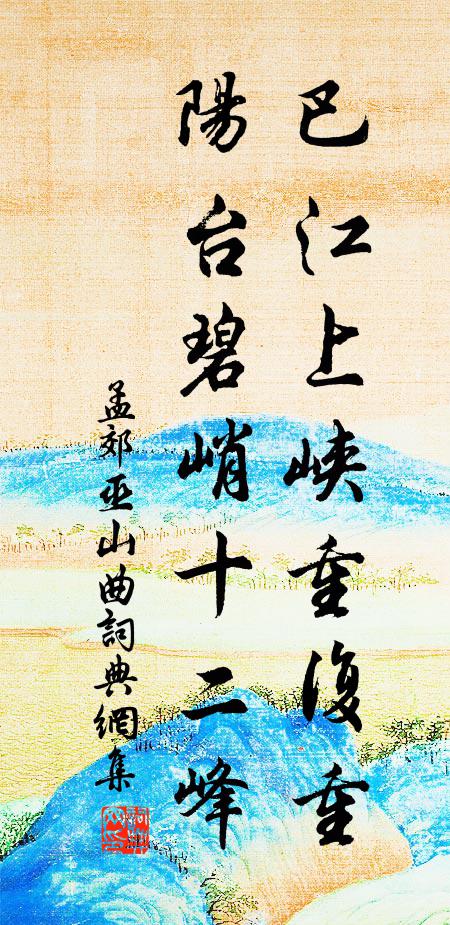 巴江上峽重復重
陽台碧峭十二峰
孟郊巫山曲詞典網集